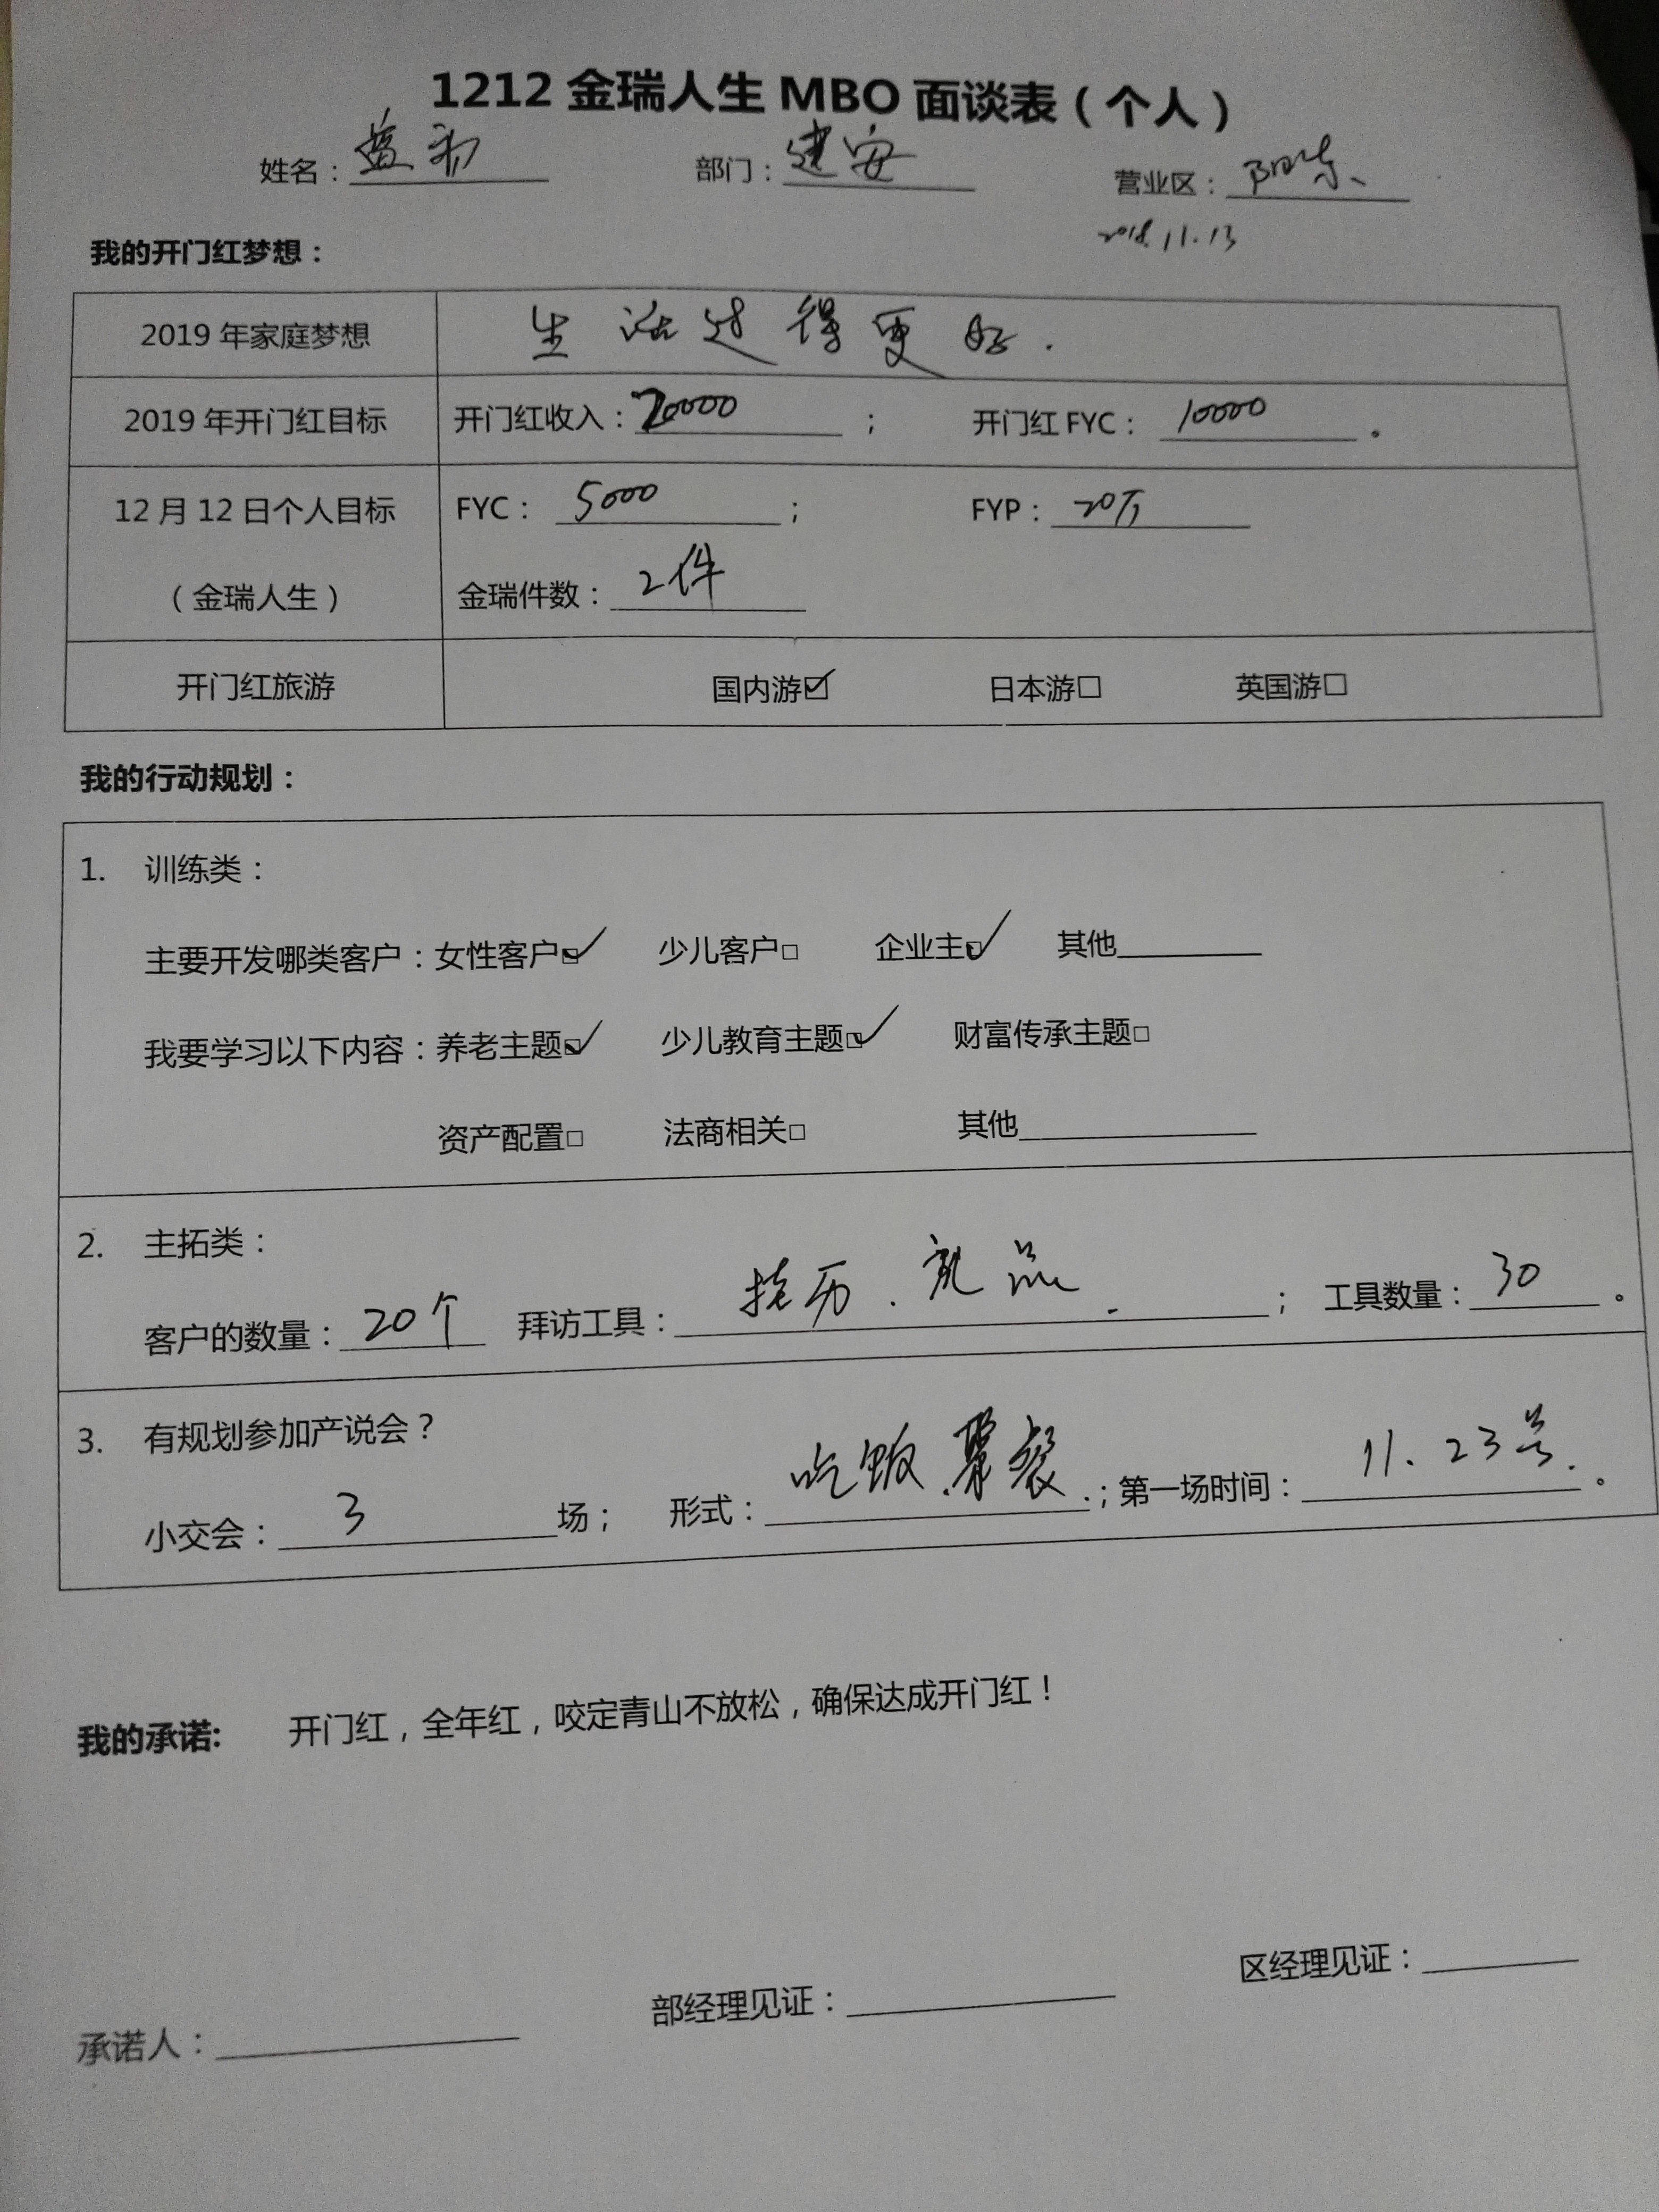 1212 金瑞人生 MBO 面谈表（个人）
姓名： 部门：建安 营业区：阳东
2018.11.13
我的开门红梦想：
2019 年家庭梦想 生活过得更好.
2019 年开门红目标 开门红收入：20000 ； 开门红 FYC：10000 。
12 月 12 日个人目标 FYC：5000 ； FYP：20万
（金瑞人生） 金瑞件数：2件
开门红旅游 国内游☑ 日本游□ 英国游□
我的行动规划：
1. 训练类：
主要开发哪类客户：女性客户☑ 少儿客户□ 企业主☑ 其他
我要学习以下内容：养老主题☑ 少儿教育主题☑ 财富传承主题□
资产配置□ 法商相关□ 其他
2. 主拓类：
客户的数量：20个 拜访工具：挂历. 礼品. ； 工具数量：30 。
3. 有规划参加产说会？
小交会：3 场； 形式：吃饭.聚餐.；第一场时间：11. 23号. 。
我的承诺: 开门红，全年红，咬定青山不放松，确保达成开门红！
承诺人： 部经理见证： 区经理见证：